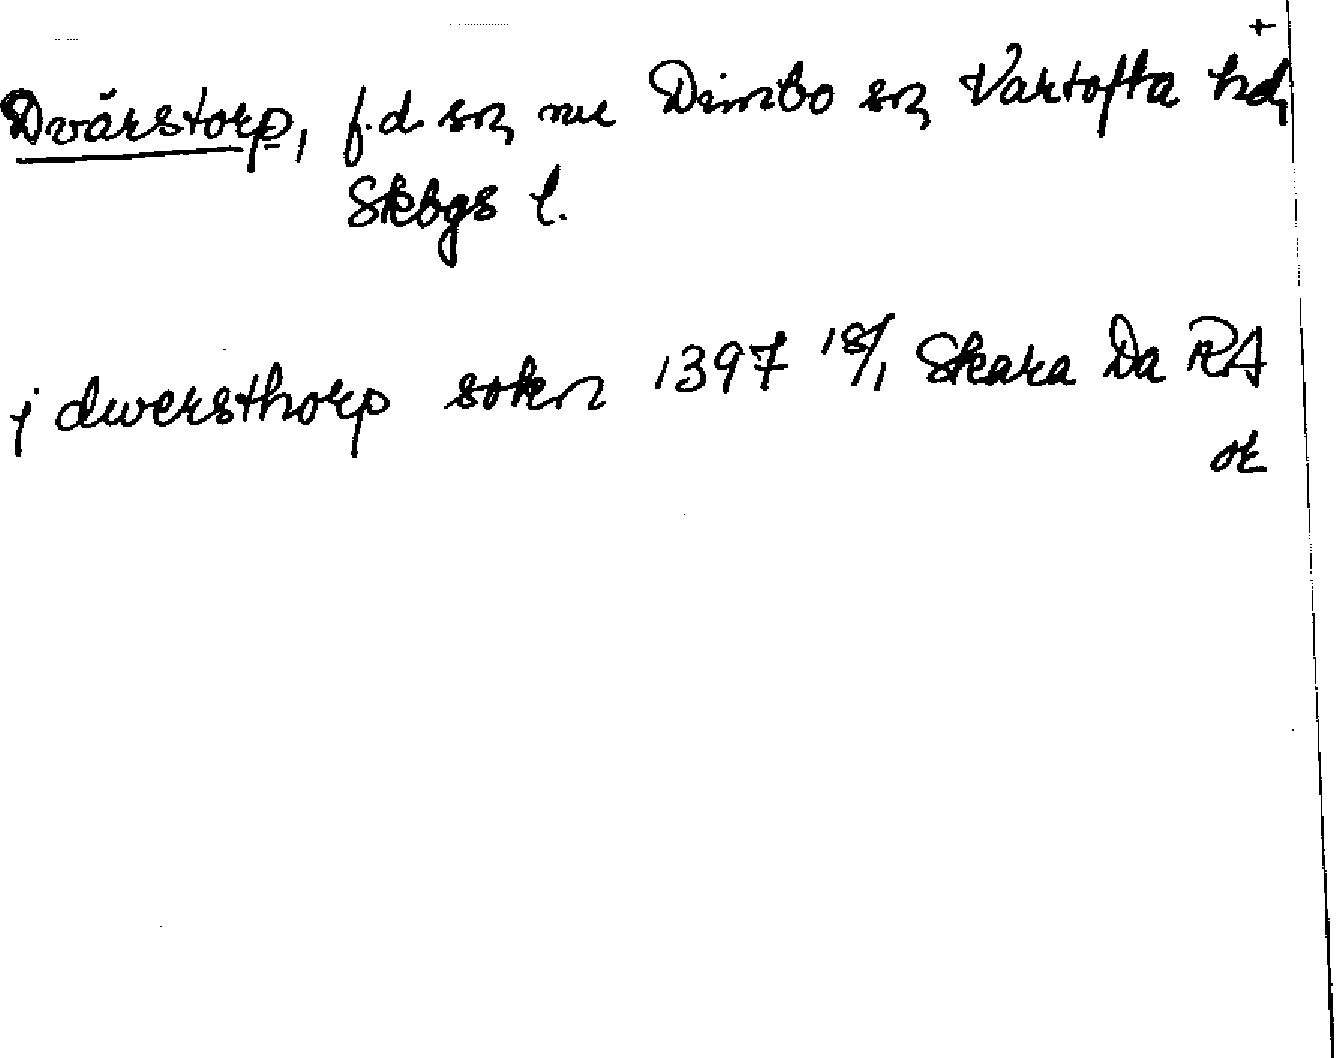 +
Dvärstorp, f.d. sn, nu Dimbo sn, Vartofta hd,
Skbgs l.
j dwersthorp sokn 1397 18/1 Skara Da RA
ok